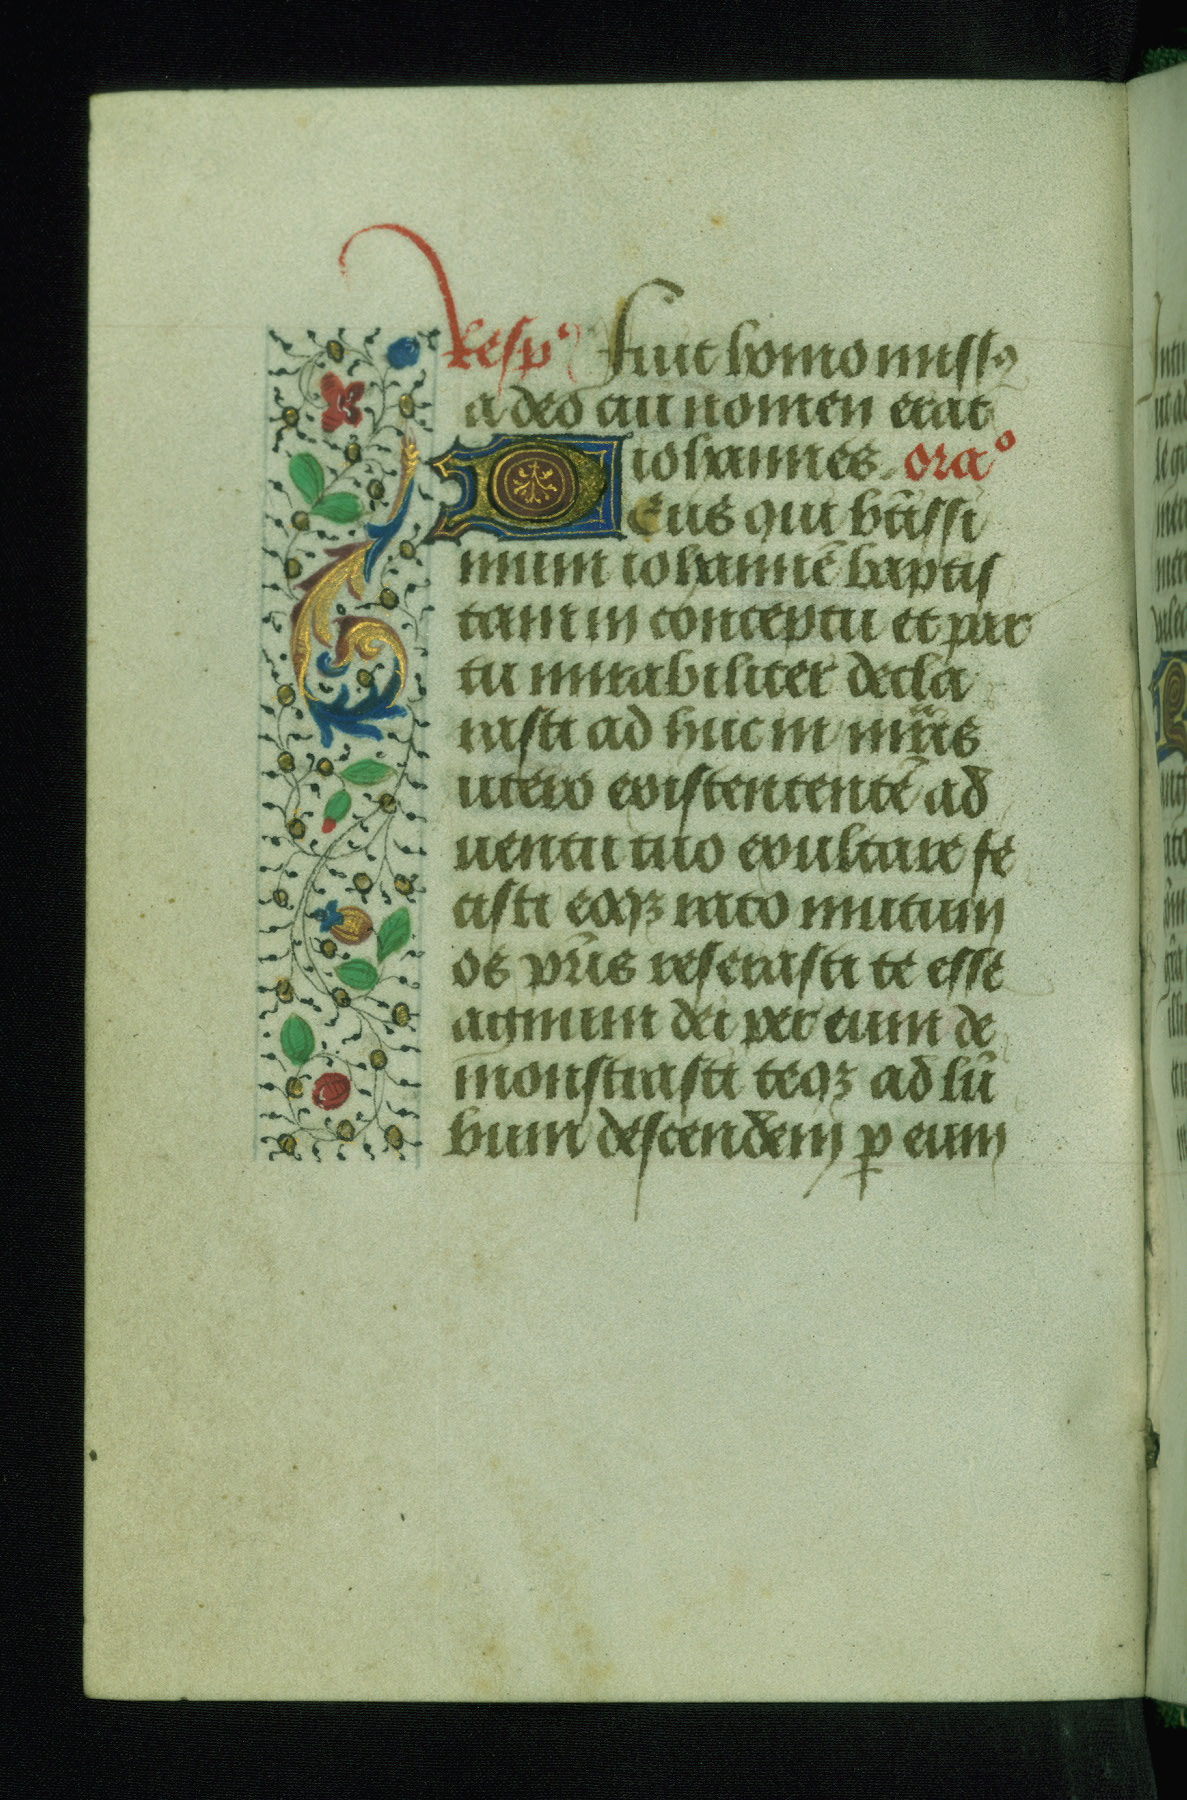 Resp͛ Fuit homo missꝰ
a deo cui nomen erat
iohannes. ora°
Deus qui bt̄issi
mum iohannē baptis
tam in conceptu et par
tu mirabiliter decla
rasti ad huc in mr̄is
utero existententē ad
uentu tuo exultare fe
cisti eoqꝫ nato mutum
os pr̄is reserasti te esse
agnum dei per eum de
monstrasti teqꝫ ad lū
bum descendem̄ ꝑ eum